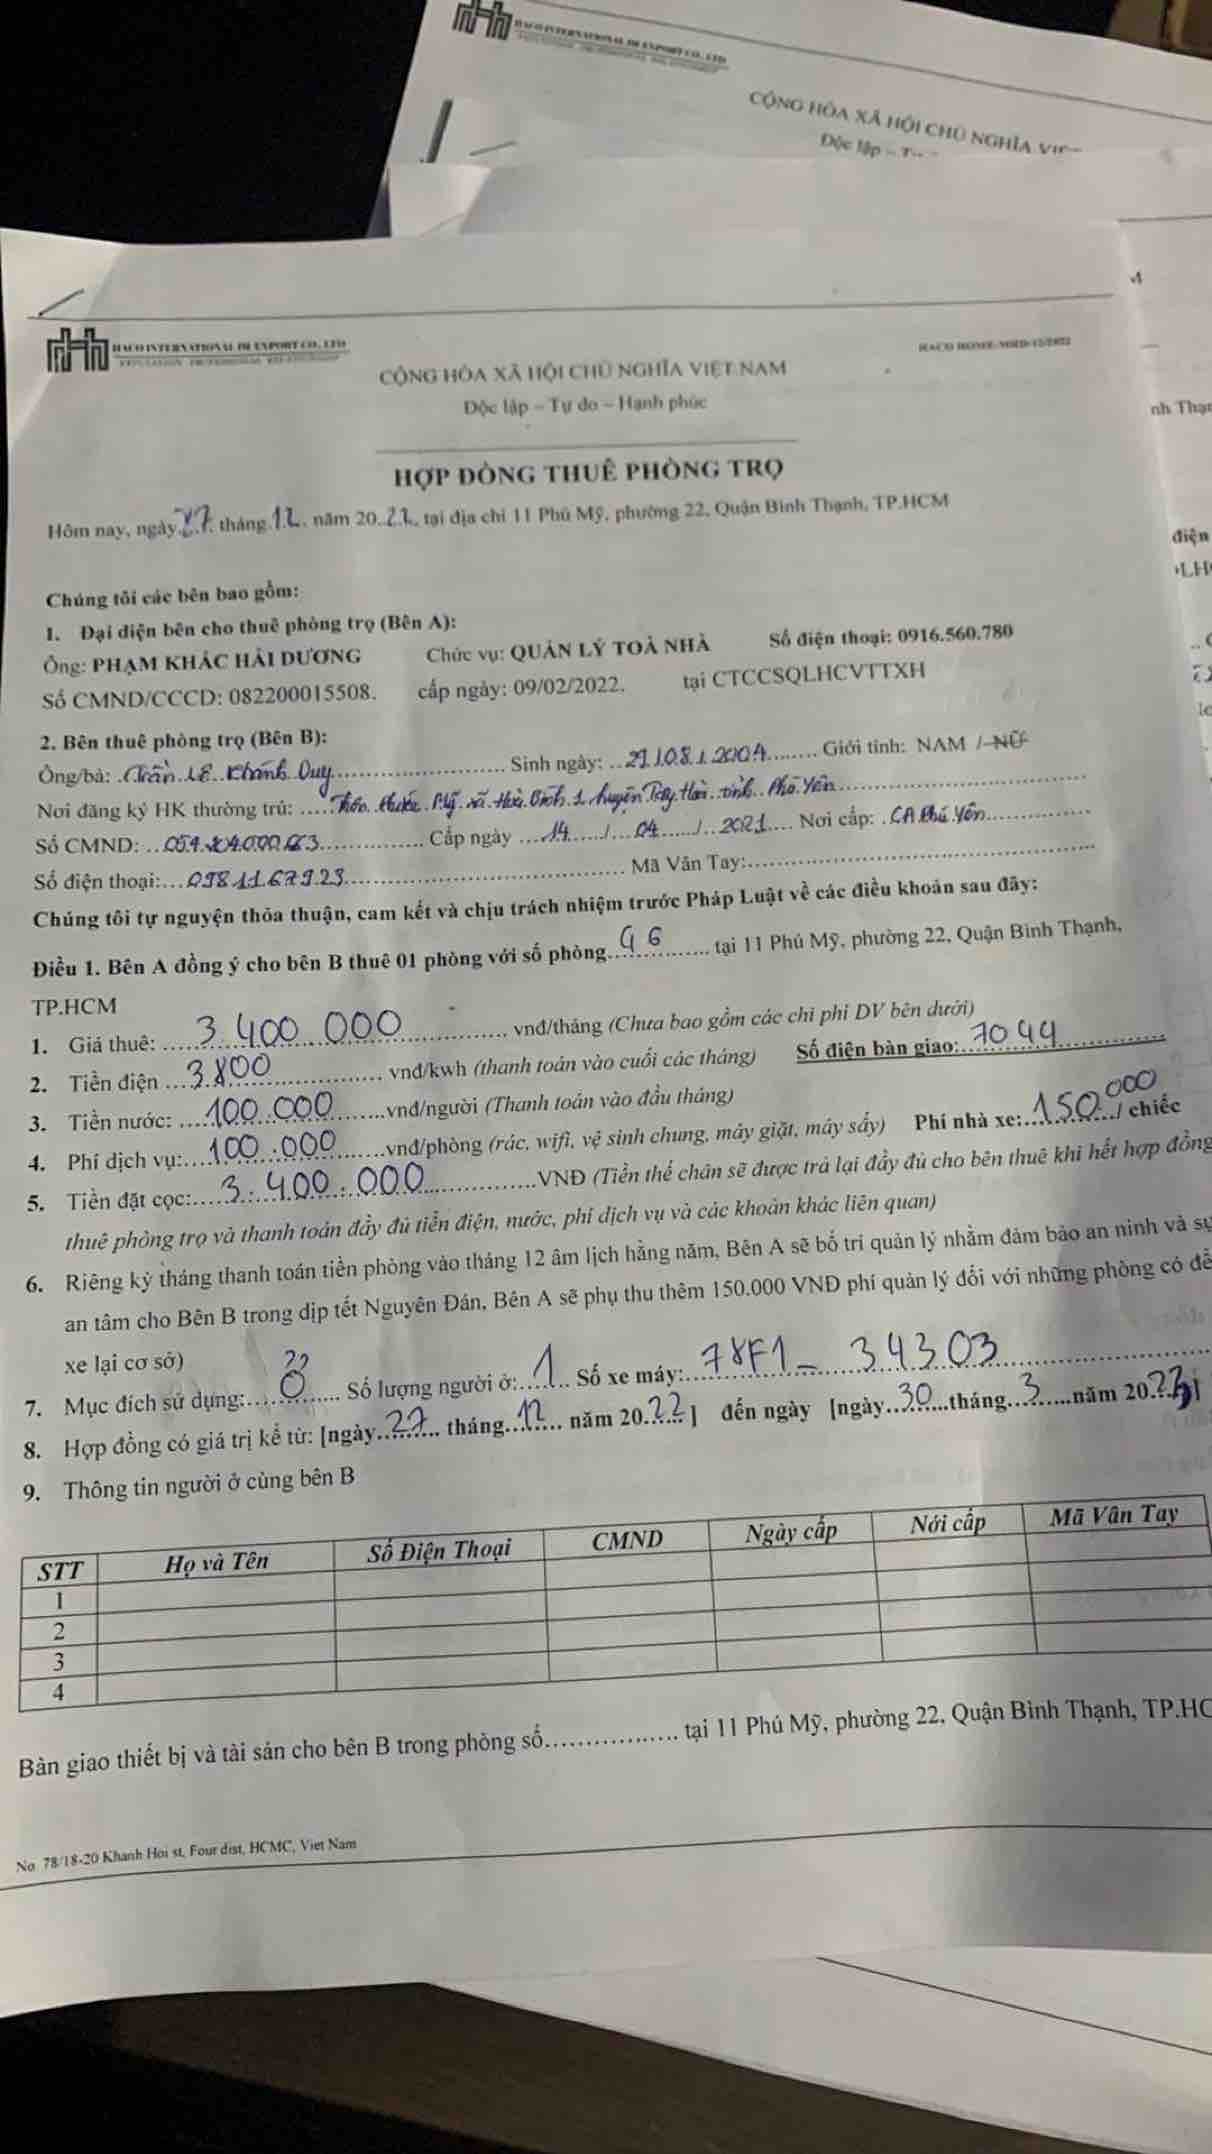 HACO INTERNATIONAL IM EXPORT CO., LTD
CỘNG HÒA XÃ HỘI CHỦ NGHĨA
Độc lập –
HACO INTERNATIONAL IM EXPORT CO., LTD
CỘNG HÒA XÃ HỘI CHỦ NGHĨA VIỆT NAM
Độc lập – Tự do – Hạnh phúc
nh Thạn
HỢP ĐỒNG THUÊ PHÒNG TRỌ
Hôm nay, ngày 27 tháng 12. năm 2022, tại địa chỉ 11 Phú Mỹ, phường 22, Quận Bình Thạnh, TP.HCM
điện
Chúng tôi các bên bao gồm:
1. Đại diện bên cho thuê phòng trọ (Bên A):
Ông: PHẠM KHẮC HẢI DƯƠNG Chức vụ: QUẢN LÝ TOÀ NHÀ Số điện thoại: 0916.560.780
Số CMND/CCCD: 082200015508. cấp ngày: 09/02/2022. tại CTCCSQLHCVTTXH
2. Bên thuê phòng trọ (Bên B):
Ông/bà: Trần Lê Khánh Duy Sinh ngày: 29/08/2004 Giới tính: NAM / NỮ
Nơi đăng ký HK thường trú: Thôn Mỹ, xã Hoà Bình 1 huyện Tây Hoà tỉnh Phú Yên
Số CMND: Cấp ngày 14/04/2021 Nơi cấp: CA Phú Yên
Số điện thoại: Mã Vân Tay:
Chúng tôi tự nguyện thỏa thuận, cam kết và chịu trách nhiệm trước Pháp Luật về các điều khoản sau đây:
Điều 1. Bên A đồng ý cho bên B thuê 01 phòng với số phòng tại 11 Phú Mỹ, phường 22, Quận Bình Thạnh,
TP.HCM
1. Giá thuê: 3 400 000 vnđ/tháng (Chưa bao gồm các chi phí DV bên dưới)
2. Tiền điện 3800 vnđ/kwh (thanh toán vào cuối các tháng) Số điện bàn giao: 7044
3. Tiền nước: 100.000 vnđ/người (Thanh toán vào đầu tháng)
4. Phí dịch vụ: 100.000 vnđ/phòng (rác, wifi, vệ sinh chung, máy giặt, máy sấy) Phí nhà xe: 150.000 / chiếc
5. Tiền đặt cọc: 3.400.000 VNĐ (Tiền thế chân sẽ được trả lại đầy đủ cho bên thuê khi hết hợp đồng
thuê phòng trọ và thanh toán đầy đủ tiền điện, nước, phí dịch vụ và các khoản khác liên quan)
6. Riêng kỳ tháng thanh toán tiền phòng vào tháng 12 âm lịch hằng năm, Bên A sẽ bố trí quản lý nhằm đảm bảo an ninh và sự
an tâm cho Bên B trong dịp tết Nguyên Đán, Bên A sẽ phụ thu thêm 150.000 VNĐ phí quản lý đối với những phòng có để
xe lại cơ sở)
7. Mục đích sử dụng: Ở Số lượng người ở: 1 Số xe máy: 78F1 – 34303
8. Hợp đồng có giá trị kể từ: [ngày 27 tháng 12 năm 2022] đến ngày [ngày 30 tháng 3 năm 2023]
9. Thông tin người ở cùng bên B
STT Họ và Tên Số Điện Thoại CMND Ngày cấp Nới cấp Mã Vân Tay
1
2
3
4
Bàn giao thiết bị và tài sản cho bên B trong phòng số tại 11 Phú Mỹ, phường 22, Quận Bình Thạnh, TP.HC
No. 78/18-20 Khanh Hoi st, Four dist, HCMC, Viet Nam